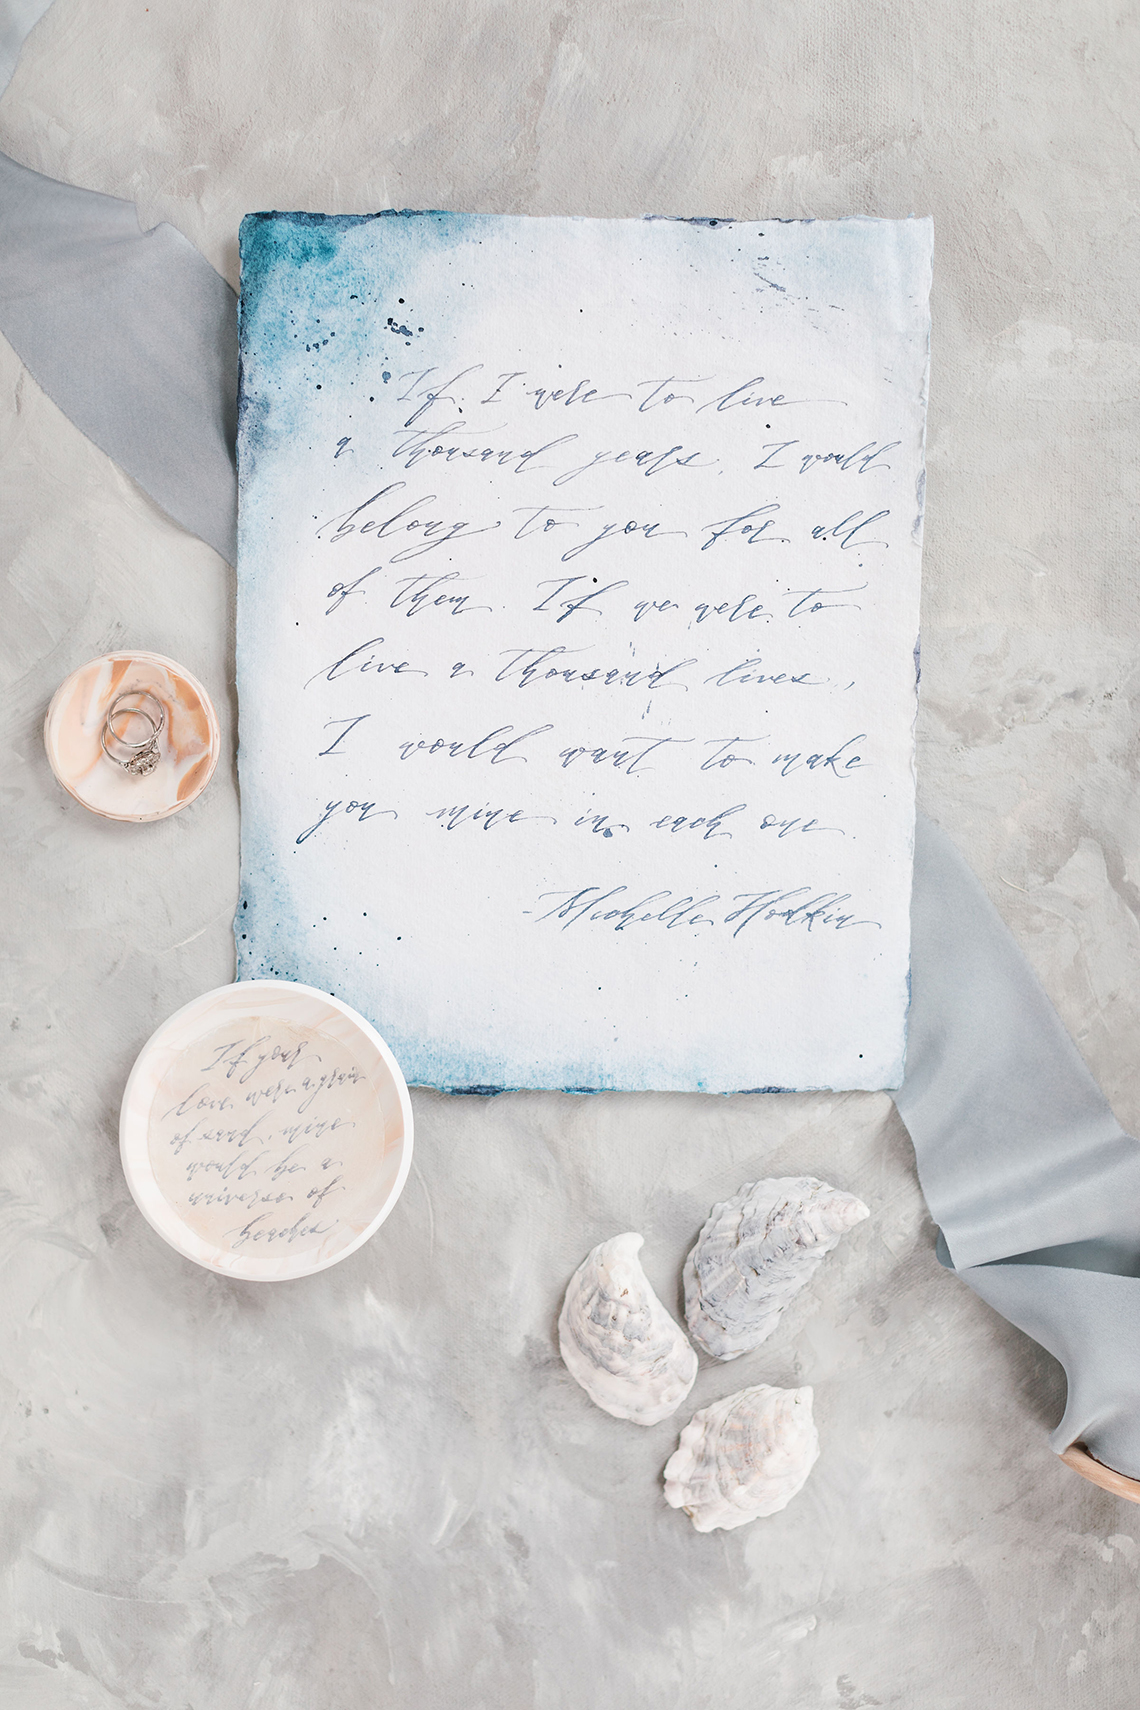 If I were to live
a thousand years, I would
belong to you for all
of them. If we were to
live a thousand lives,
I would want to make
you mine in each one.
- Michelle Hodkin
If your
love were a grain
of sand, mine
would be a
universe of
beaches.